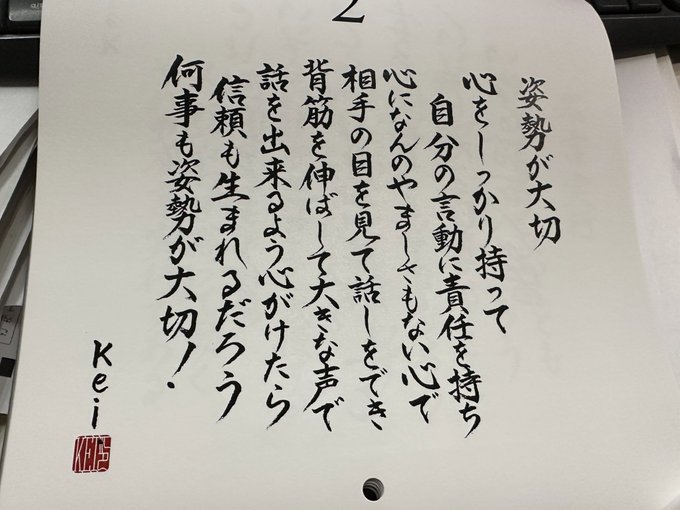 2
姿勢が大切
心をしっかり持って
自分の言動に責任を持ち
心になんのやましさもない心で
相手の目を見て話しをでき
背筋を伸ばして大きな声で
話を出来るよう心がけたら
信頼も生まれるだろう
何事も姿勢が大切!
Kei